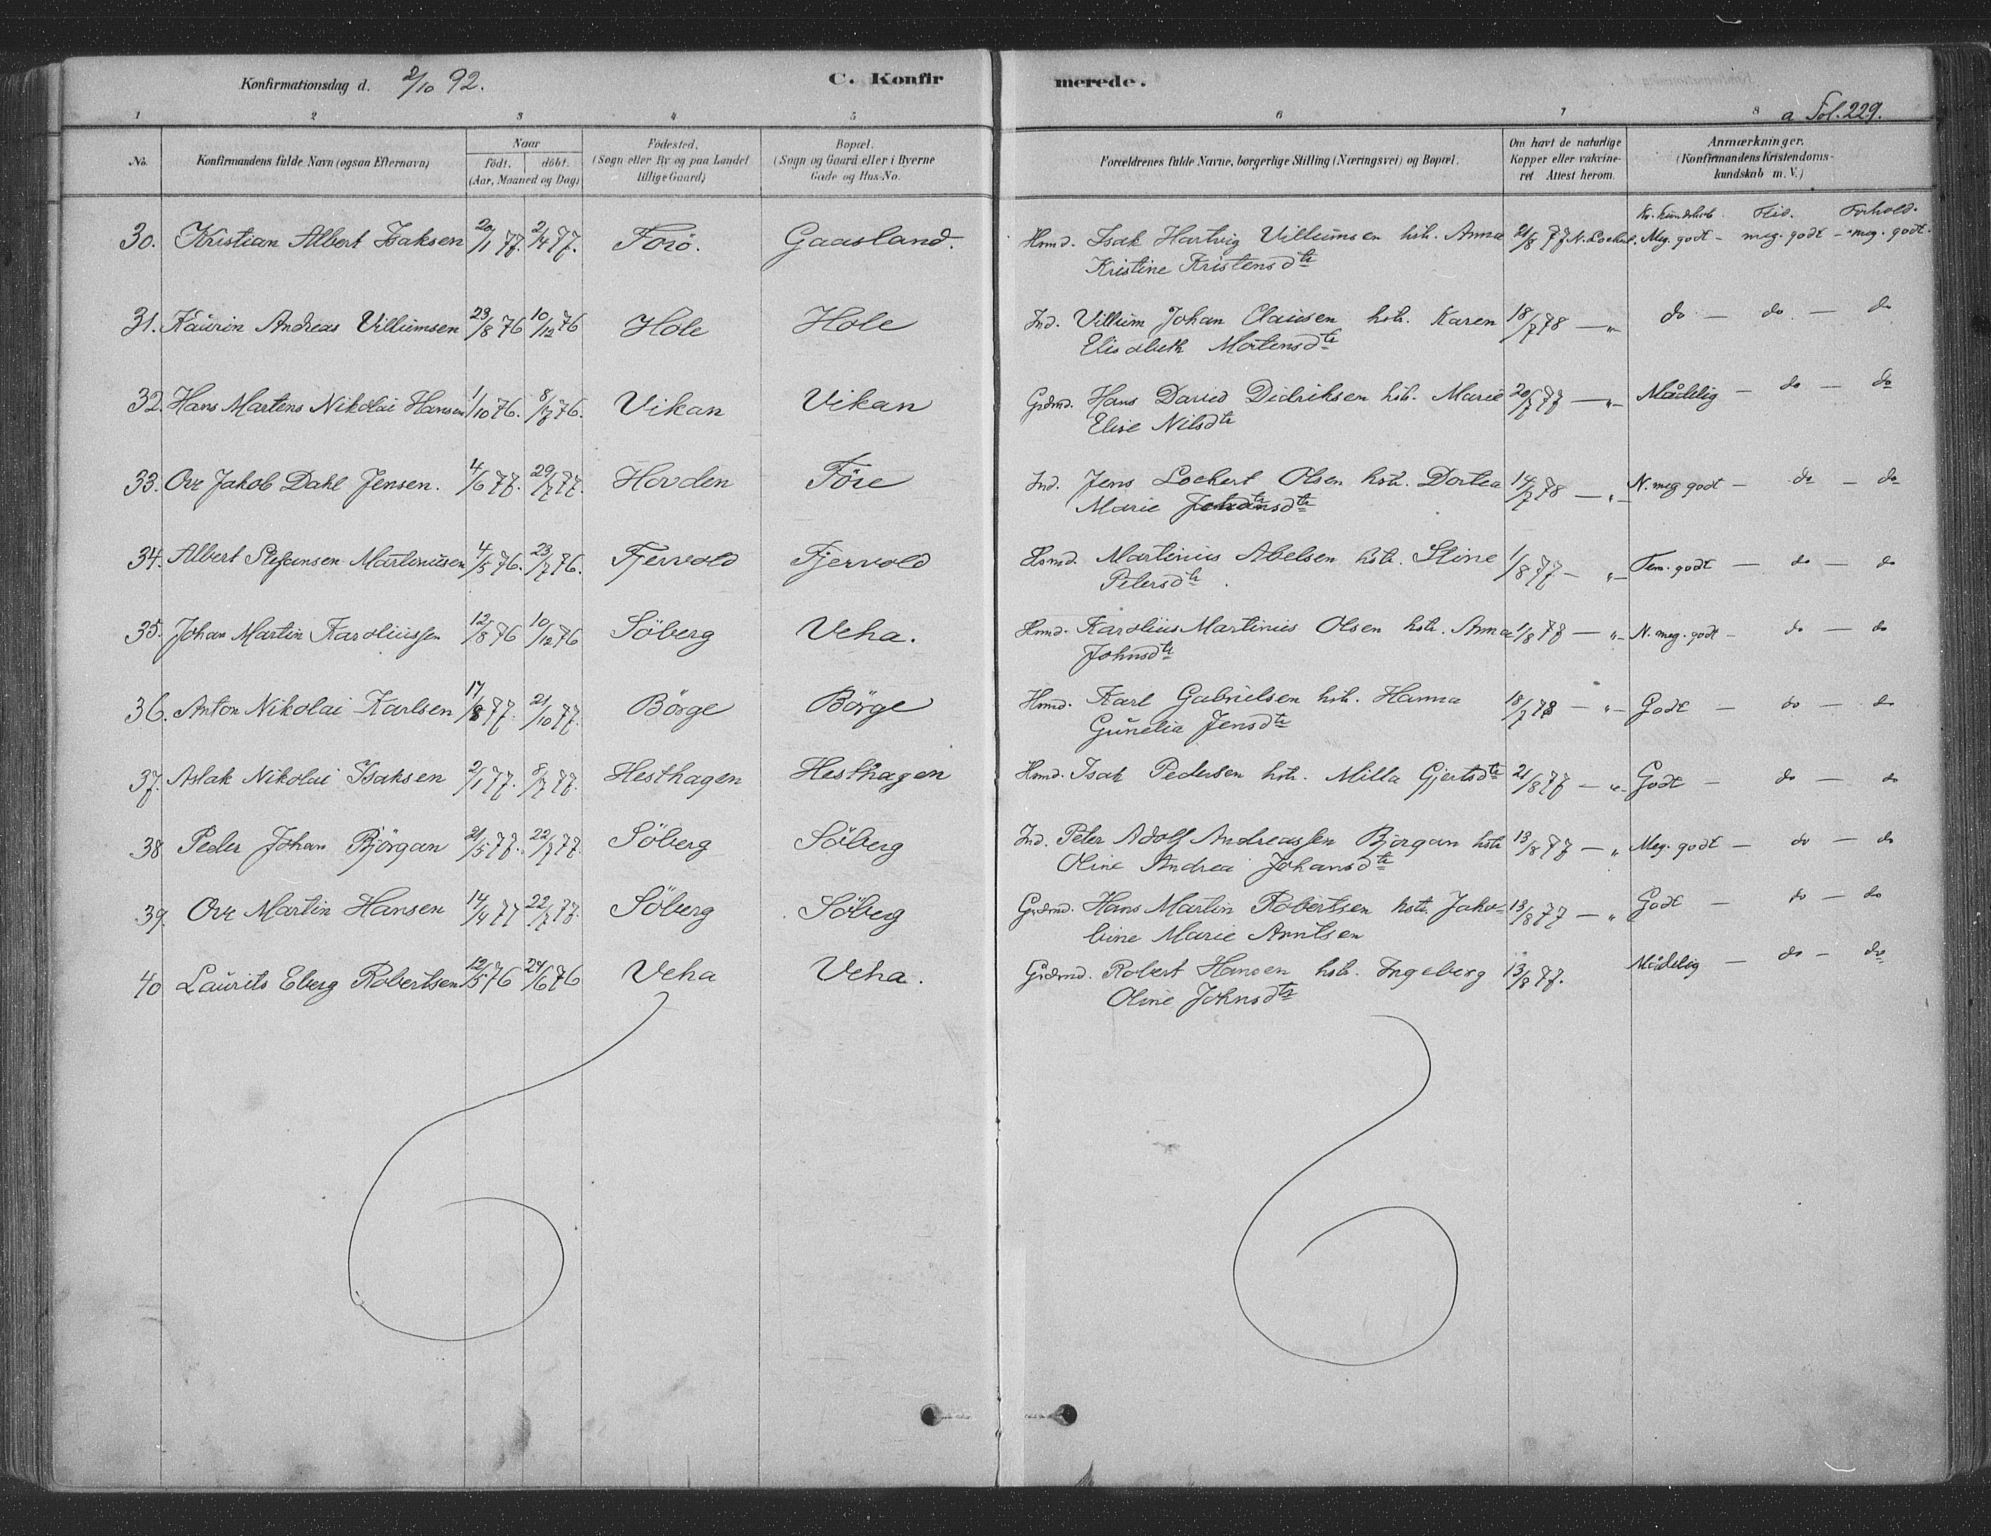 Konfirmationsdag d. 2/10 92. C. Konfirmerede.
a Fol. 229.
1 2 3 4 5 6 7 8
No. Konfirmandens fulde Navn (ogsaa Efternavn) Naar født. døbt. (Aar, Maaned og Dag) Fødested. (Sogn eller By og paa Landet tillige Gaard) Bopæl. (Sogn og Gaard eller i Byerne Gade og Hus-No. Forældrenes fulde Navne, borgerlige Stilling (Næringsvei) og Bopæl. Om havt de naturlige Kopper eller vakcineret Attest herom. Anmærkninger. (Konfirmandens Kristendomskundskab m. V.)
Kr. kundskab. Flid. Forhold.
30. Kristian Albert Isaksen 20/1 77. 2/4 77. Forö. Gaasland. Hmd. Isak Hartvig Villumsen hstr. Anna 21/8 77 N. Lockert. Meg. godt - meg. godt - meg. godt.
Kristine Kristensdtr
31. Kaurin Andreas Villumsen 23/8 76 10/12 76 Hole Hole Ind. Villum Johan Clausen hstr. Karen 18/7 78 — „ — do — do — do
Elisabeth Mortensdtr
32. Hans Martens Nikolai Hansen 1/10 76. 8/7 76. Vikan Vikan Grdmd. Hans David Didriksen hstr. Marie 20/7 77 — „ — Mådelig — do — do
Elise Nilsdtr
33. Ove Jakob Dahl Jensen. 4/6 77. 29/7 77. Hovden Före Ind. Jens Lockert Olsen hstr. Dortea 14/7 78 — „ — N. meg godt — do — do
Marie
34. Albert Stefansen Martinusen 4/5 76. 23/7 76. Fjervold Fjervold Hsmd. Martinus Abelsen hstr. Stine 1/8 77 — „ — Tem. godt — do — do
Petersdtr.
35. Johan Martin Karoliussen 12/8 76 10/12 76 Söberg Veha. Hmd. Karolius Martinus Olsen hstr. Anna 1/8 78 — „ — N. meg. godt - do — do
Johnsdtr
36. Anton Nikolai Karlsen 17/8 77. 21/10 77. Börge Börge Hmd. Karl Gabrielsen hstr. Hanna 18/7 78 — „ — Godt — do — do
Gunelia Jensdtr
37. Aslak Nikolai Isaksen 2/1 77. 8/7 77. Hesthagen Hesthagen Hmd. Isak Pedersen hstr. Milla Gjertsdtr 21/8 77 — „ — Godt — do — do
38 Peder Johan Björgan 21/5 77. 22/7 77. Söberg Söberg Ind. Peter Adolf Andreassen Björgan hstr 13/8 77 — „ Meg. godt — do — do
Oline Andrea Johansdtr
39. Ove Martin Hansen 14/4 77 22/7 77. Söberg Söberg Grdmd. Hans Martin Robertsen hstr. Jako- 13/8 77 — „ Godt — do — do
bine Marie Arntsen
40 Laurits Eberg Robertsen 12/5 76 24/6 76 Veha Veha. Grdmd. Robert Hansen hstr. Ingeberg 13/8 77. Mådelig — do — do
Oline Johnsdtr